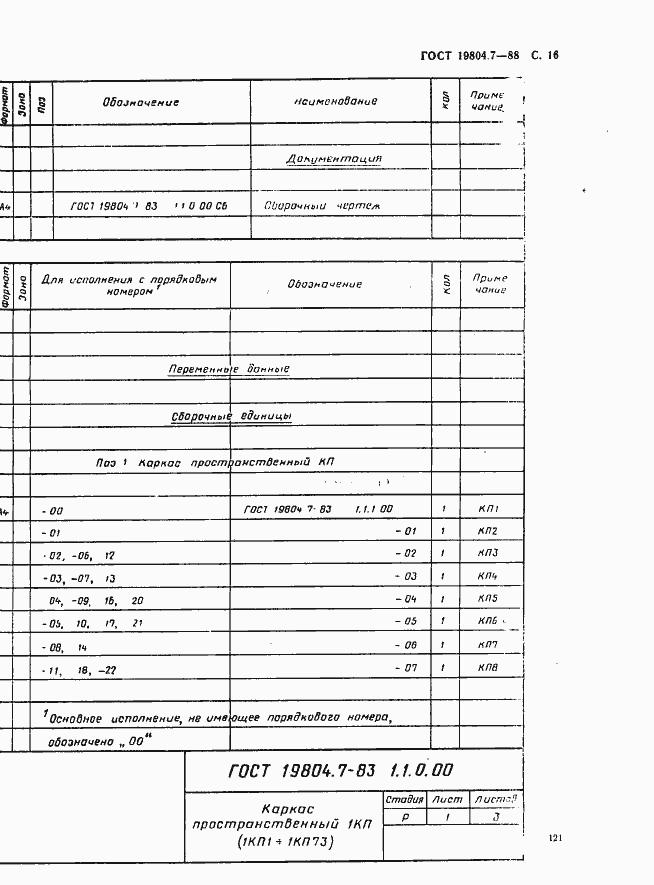 ГОСТ 19804.7—88 С. 16
Формат Зона Поз Обозначение Наименование Кол Приме
чание
Документация
А4 ГОСТ 19804 83 1 1 0 00 СБ Сборочный чертеж
Формат Зона Для исполнения с порядковым номером¹ Обозначение Кол Приме
чание
Переменные данные
Сборочные единицы
Поз 1 Каркас пространственный КП
А4 - 00 ГОСТ 19804 7-83 1.1.1 00 1 КП1
- 01 - 01 1 КП2
- 02, -06, 12 - 02 1 КП3
- 03, -07, 13 - 03 1 КП4
04, -09, 16, 20 - 04 1 КП5
- 05, 10, 17, 21 - 05 1 КП6
- 08, 14 - 06 1 КП7
- 11, 18, -22 - 07 1 КП8
¹Основное исполнение, не имеющее порядкового номера,
обозначено „00"
ГОСТ 19804.7-83 1.1.0.00
Каркас
пространственный 1КП
(1КП1 ÷ 1КП73)
Стадия Лист Листов
Р 1 3
121